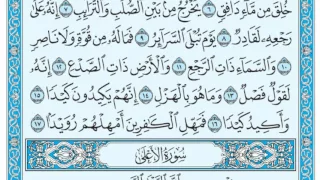 خُلِقَ مِن مَّآءٍ دَافِقٍ ٦ يَخْرُجُ مِنۢ بَيْنِ ٱلصُّلْبِ وَٱلتَّرَآئِبِ ٧ إِنَّهُۥ عَلَىٰ
رَجْعِهِۦ لَقَادِرٌ ٨ يَوْمَ تُبْلَى ٱلسَّرَآئِرُ ٩ فَمَا لَهُۥ مِن قُوَّةٍ وَلَا نَاصِرٍ
١٠ وَٱلسَّمَآءِ ذَاتِ ٱلرَّجْعِ ١١ وَٱلْأَرْضِ ذَاتِ ٱلصَّدْعِ ١٢ إِنَّهُۥ
لَقَوْلٌ فَصْلٌ ١٣ وَمَا هُوَ بِٱلْهَزْلِ ١٤ إِنَّهُمْ يَكِيدُونَ كَيْدًا ١٥
وَأَكِيدُ كَيْدًا ١٦ فَمَهِّلِ ٱلْكَٰفِرِينَ أَمْهِلْهُمْ رُوَيْدًۢا ١٧
سُورَةُ الأَعْلَىٰ